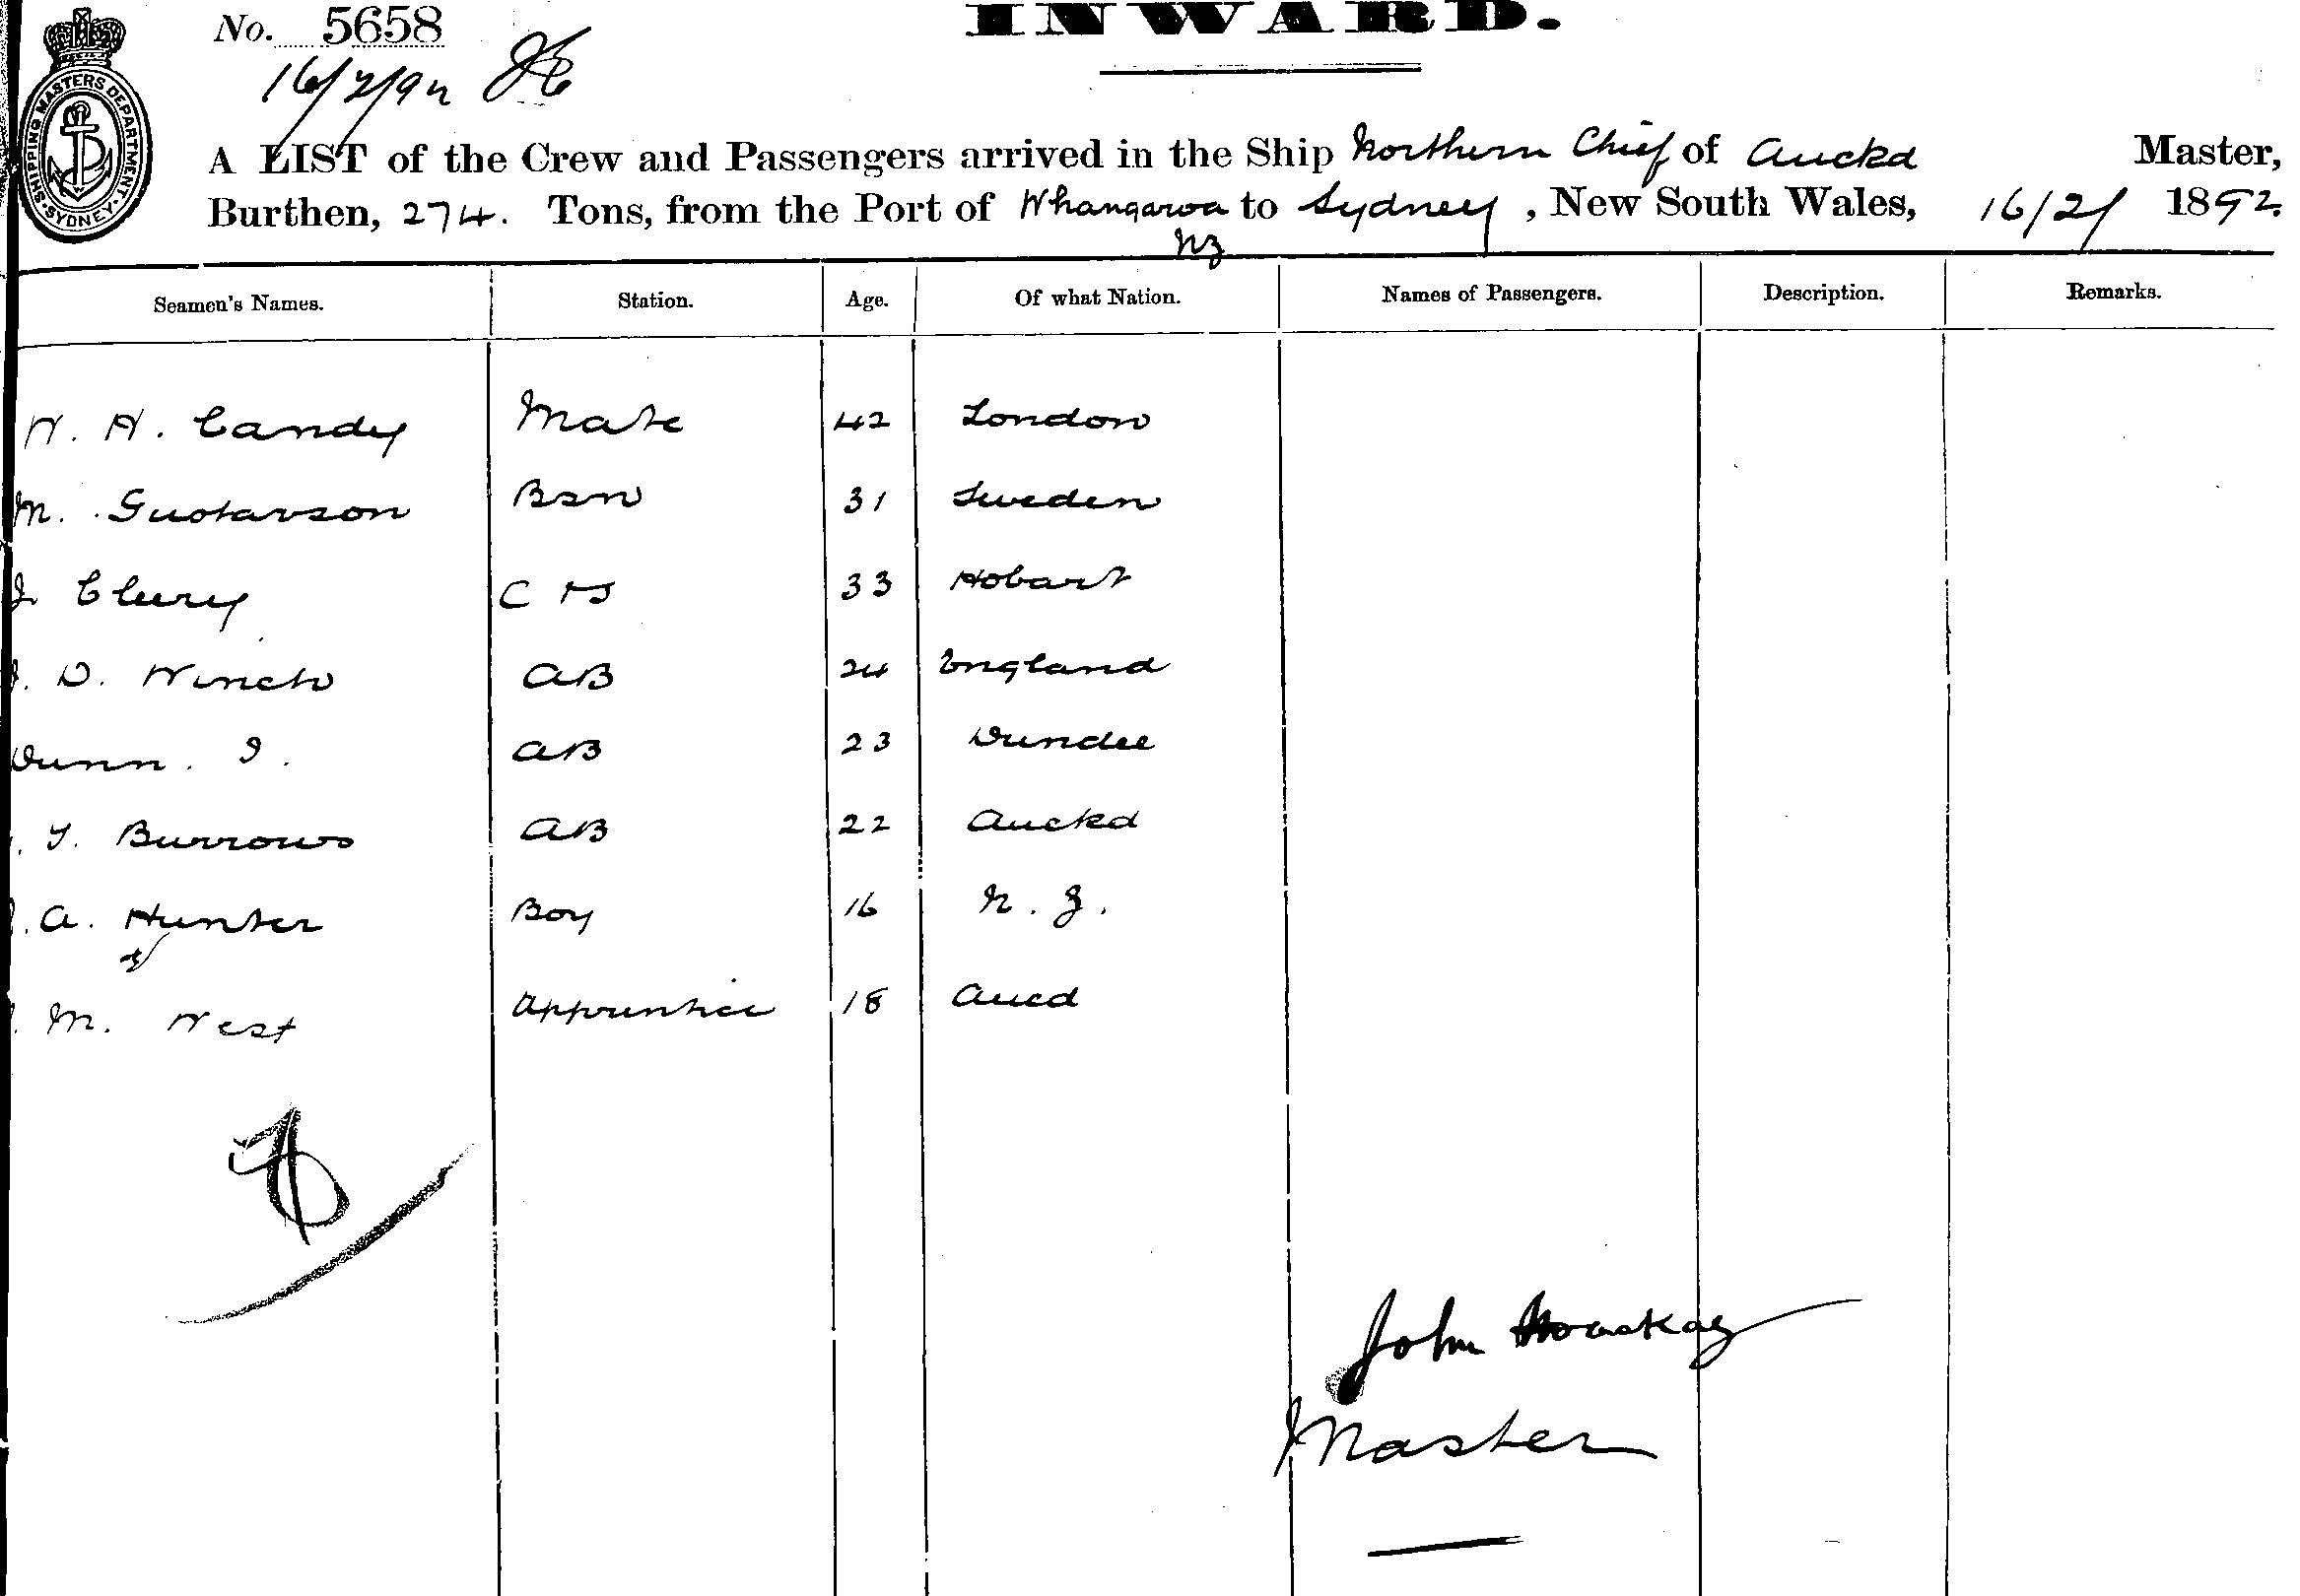 INWARD.
No. 5658
16/2/92
SHIPPING MASTERS DEPARTMENT. SYDNEY.
A LIST of the Crew and Passengers arrived in the Ship Northern Chief of Auckd Master,
Burthen, 274. Tons, from the Port of Whangaroa to Sydney, New South Wales, 16/2/ 1892.
NZ
Seamen's Names. Station. Age. Of what Nation. Names of Passengers. Description. Remarks.
W. H. Candy Mate 42 London
M. Gustavson Bsn 31 Sweden
J Clury C S 33 Hobart
D. Winch AB 24 England
Dunn. J. AB 23 Dundee
T. Burrows AB 22 Auckd
A. Hunter Boy 16 N. Z.
M. West Apprentice 18 Aucd
John
Master